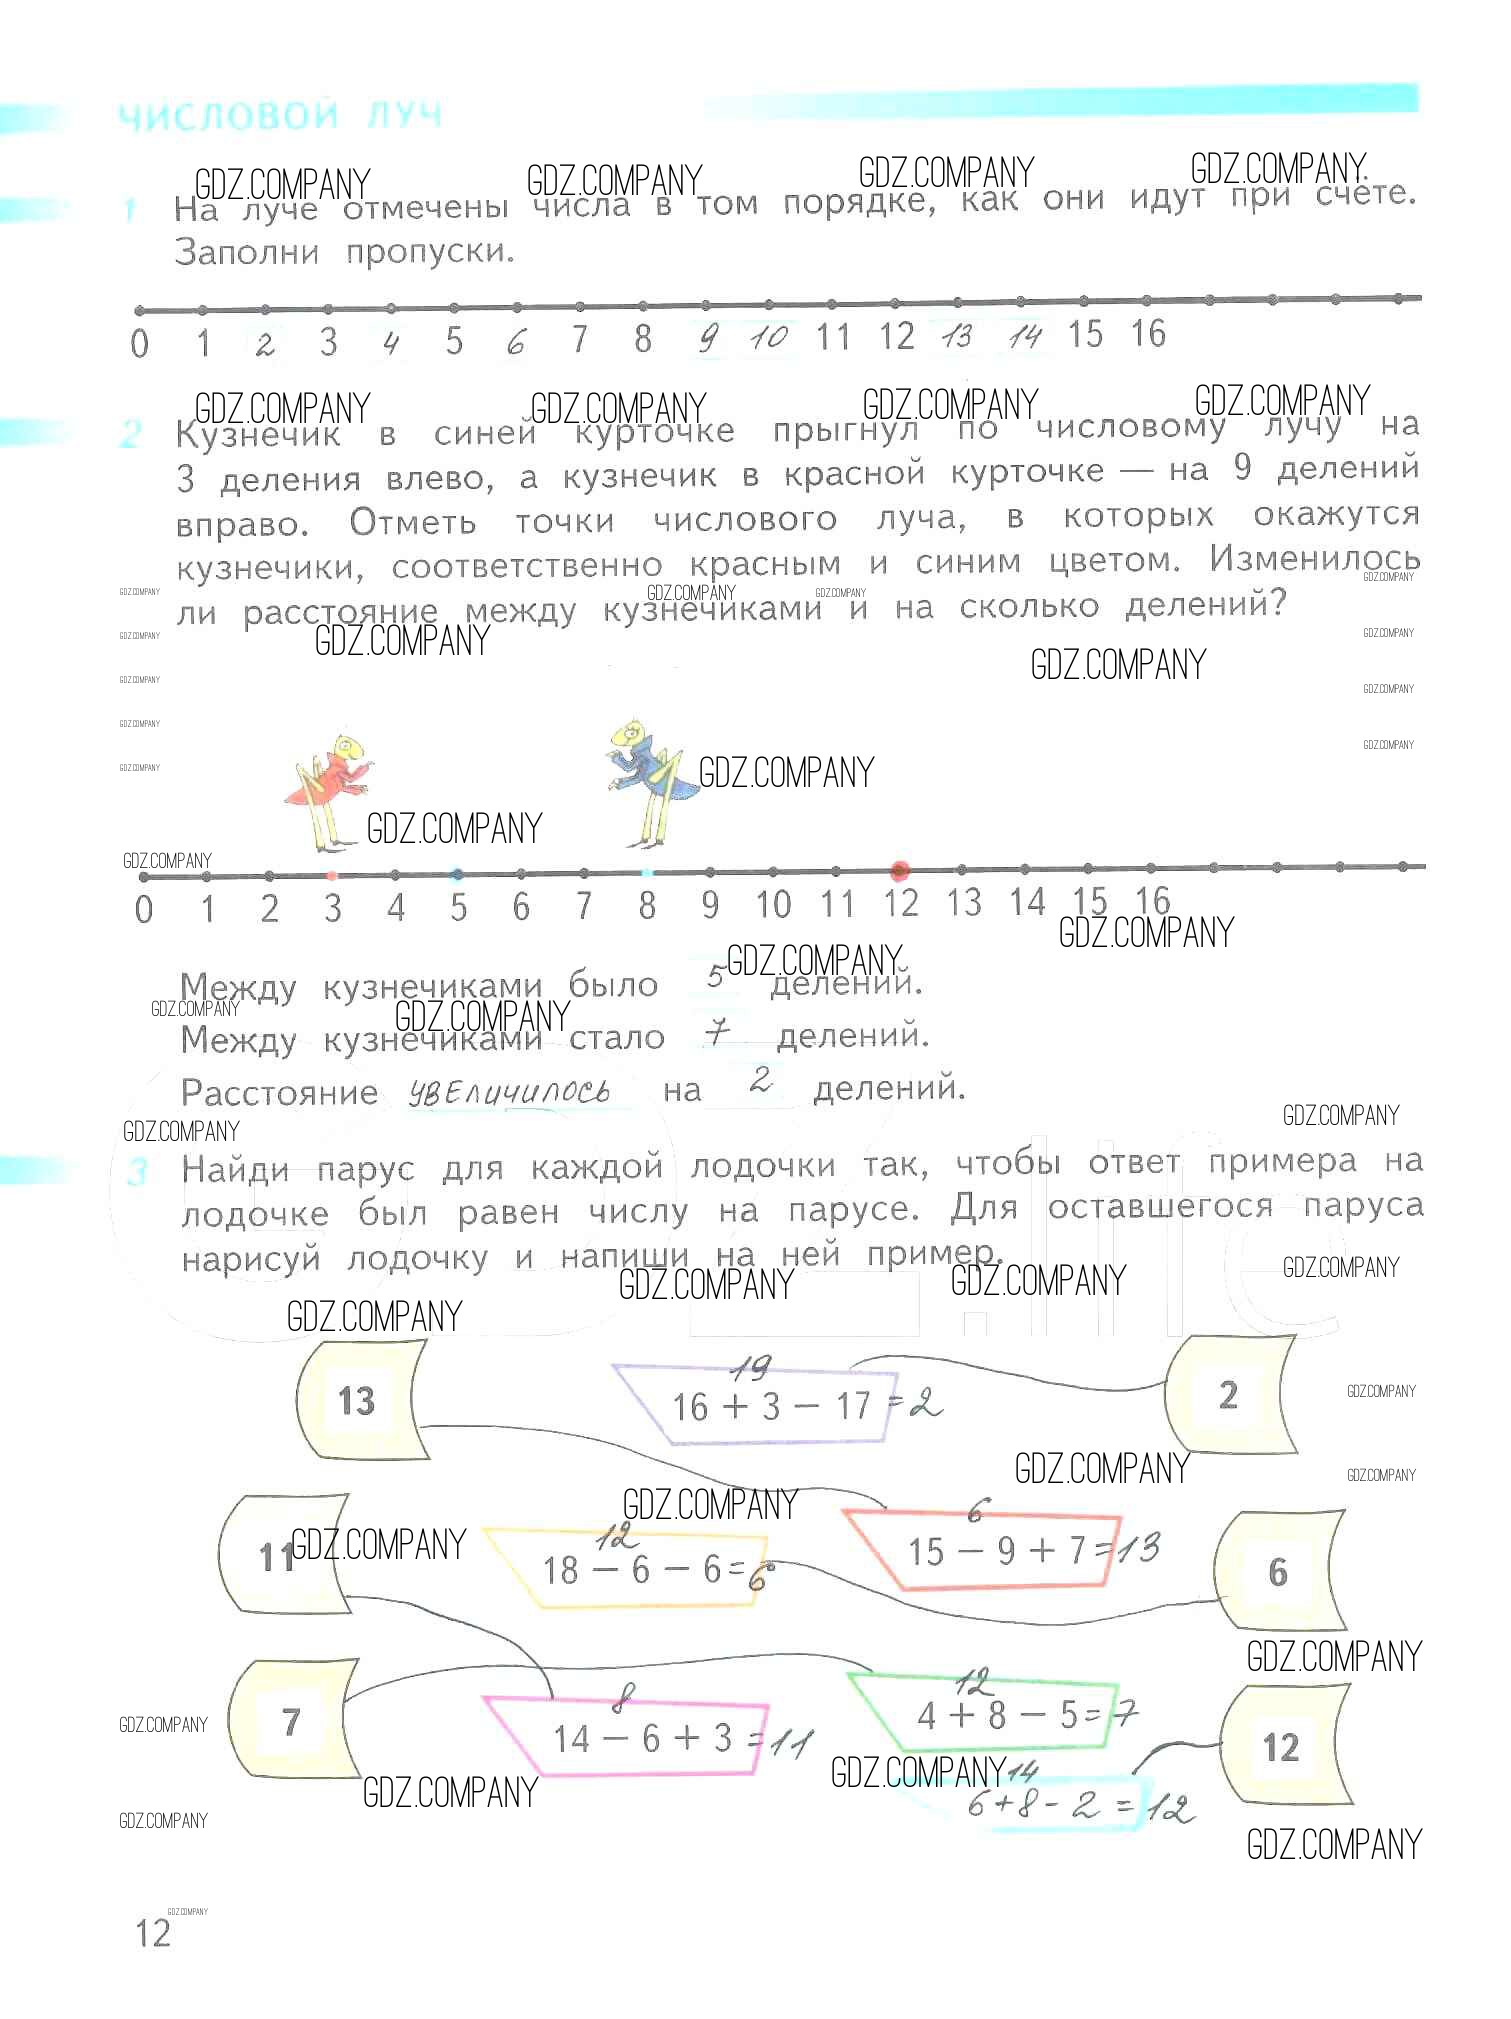 ЧИСЛОВОЙ ЛУЧ
GDZ.COMPANY GDZ.COMPANY GDZ.COMPANY GDZ.COMPANY
1 На луче отмечены числа в том порядке, как они идут при счёте.
Заполни пропуски.
0 1 2 3 4 5 6 7 8 9 10 11 12 13 14 15 16
GDZ.COMPANY GDZ.COMPANY GDZ.COMPANY GDZ.COMPANY
2 Кузнечик в синей курточке прыгнул по числовому лучу на
3 деления влево, а кузнечик в красной курточке — на 9 делений
вправо. Отметь точки числового луча, в которых окажутся
кузнечики, соответственно красным и синим цветом. Изменилось
GDZ.COMPANY GDZ.COMPANY GDZ.COMPANY GDZ.COMPANY
ли расстояние между кузнечиками и на сколько делений?
GDZ.COMPANY GDZ.COMPANY GDZ.COMPANY
GDZ.COMPANY GDZ.COMPANY GDZ.COMPANY
GDZ.COMPANY GDZ.COMPANY
GDZ.COMPANY GDZ.COMPANY
GDZ.COMPANY
GDZ.COMPANY
0 1 2 3 4 5 6 7 8 9 10 11 12 13 14 15 16
GDZ.COMPANY
GDZ.COMPANY
Между кузнечиками было 5 делений.
GDZ.COMPANY GDZ.COMPANY
Между кузнечиками стало 7 делений.
Расстояние увеличилось на 2 делений.
GDZ.COMPANY GDZ.COMPANY
3 Найди парус для каждой лодочки так, чтобы ответ примера на
лодочке был равен числу на парусе. Для оставшегося паруса
нарисуй лодочку и напиши на ней пример.
GDZ.COMPANY GDZ.COMPANY GDZ.COMPANY
GDZ.COMPANY
.life
19
13 16 + 3 − 17 = 2 2
GDZ.COMPANY
GDZ.COMPANY GDZ.COMPANY
GDZ.COMPANY
12 6
11 GDZ.COMPANY 18 − 6 − 6 = 6 15 − 9 + 7 = 13 6
GDZ.COMPANY
8 12
7 14 − 6 + 3 = 11 4 + 8 − 5 = 7 12
GDZ.COMPANY
GDZ.COMPANY GDZ.COMPANY 14
6 + 8 − 2 = 12
GDZ.COMPANY GDZ.COMPANY
GDZ.COMPANY
12